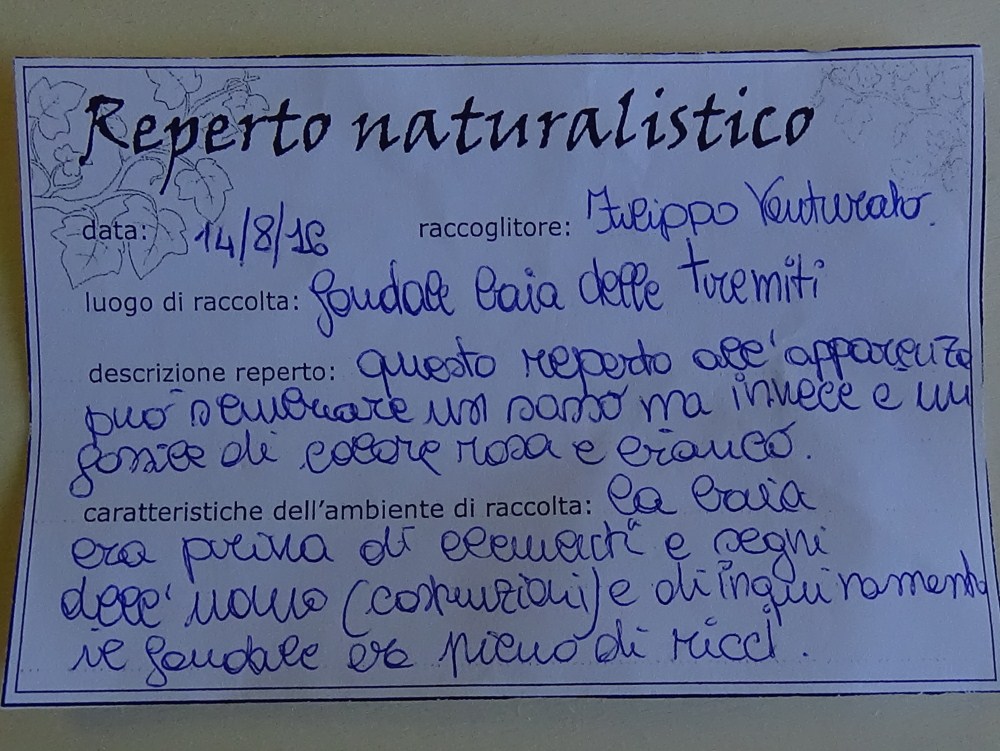 Reperto naturalistico
data: 14/8/16 raccoglitore: Filippo Venturato.
luogo di raccolta: fondale baia delle tremiti
descrizione reperto: questo reperto all'apparenza
può sembrare un sasso ma invece e un
fossile di colore rosa e bianco.
caratteristiche dell'ambiente di raccolta: la baia
era priva di elementi e segni
dell'uomo (costruzioni) e di inquinamento
il fondale era pieno di ricci.